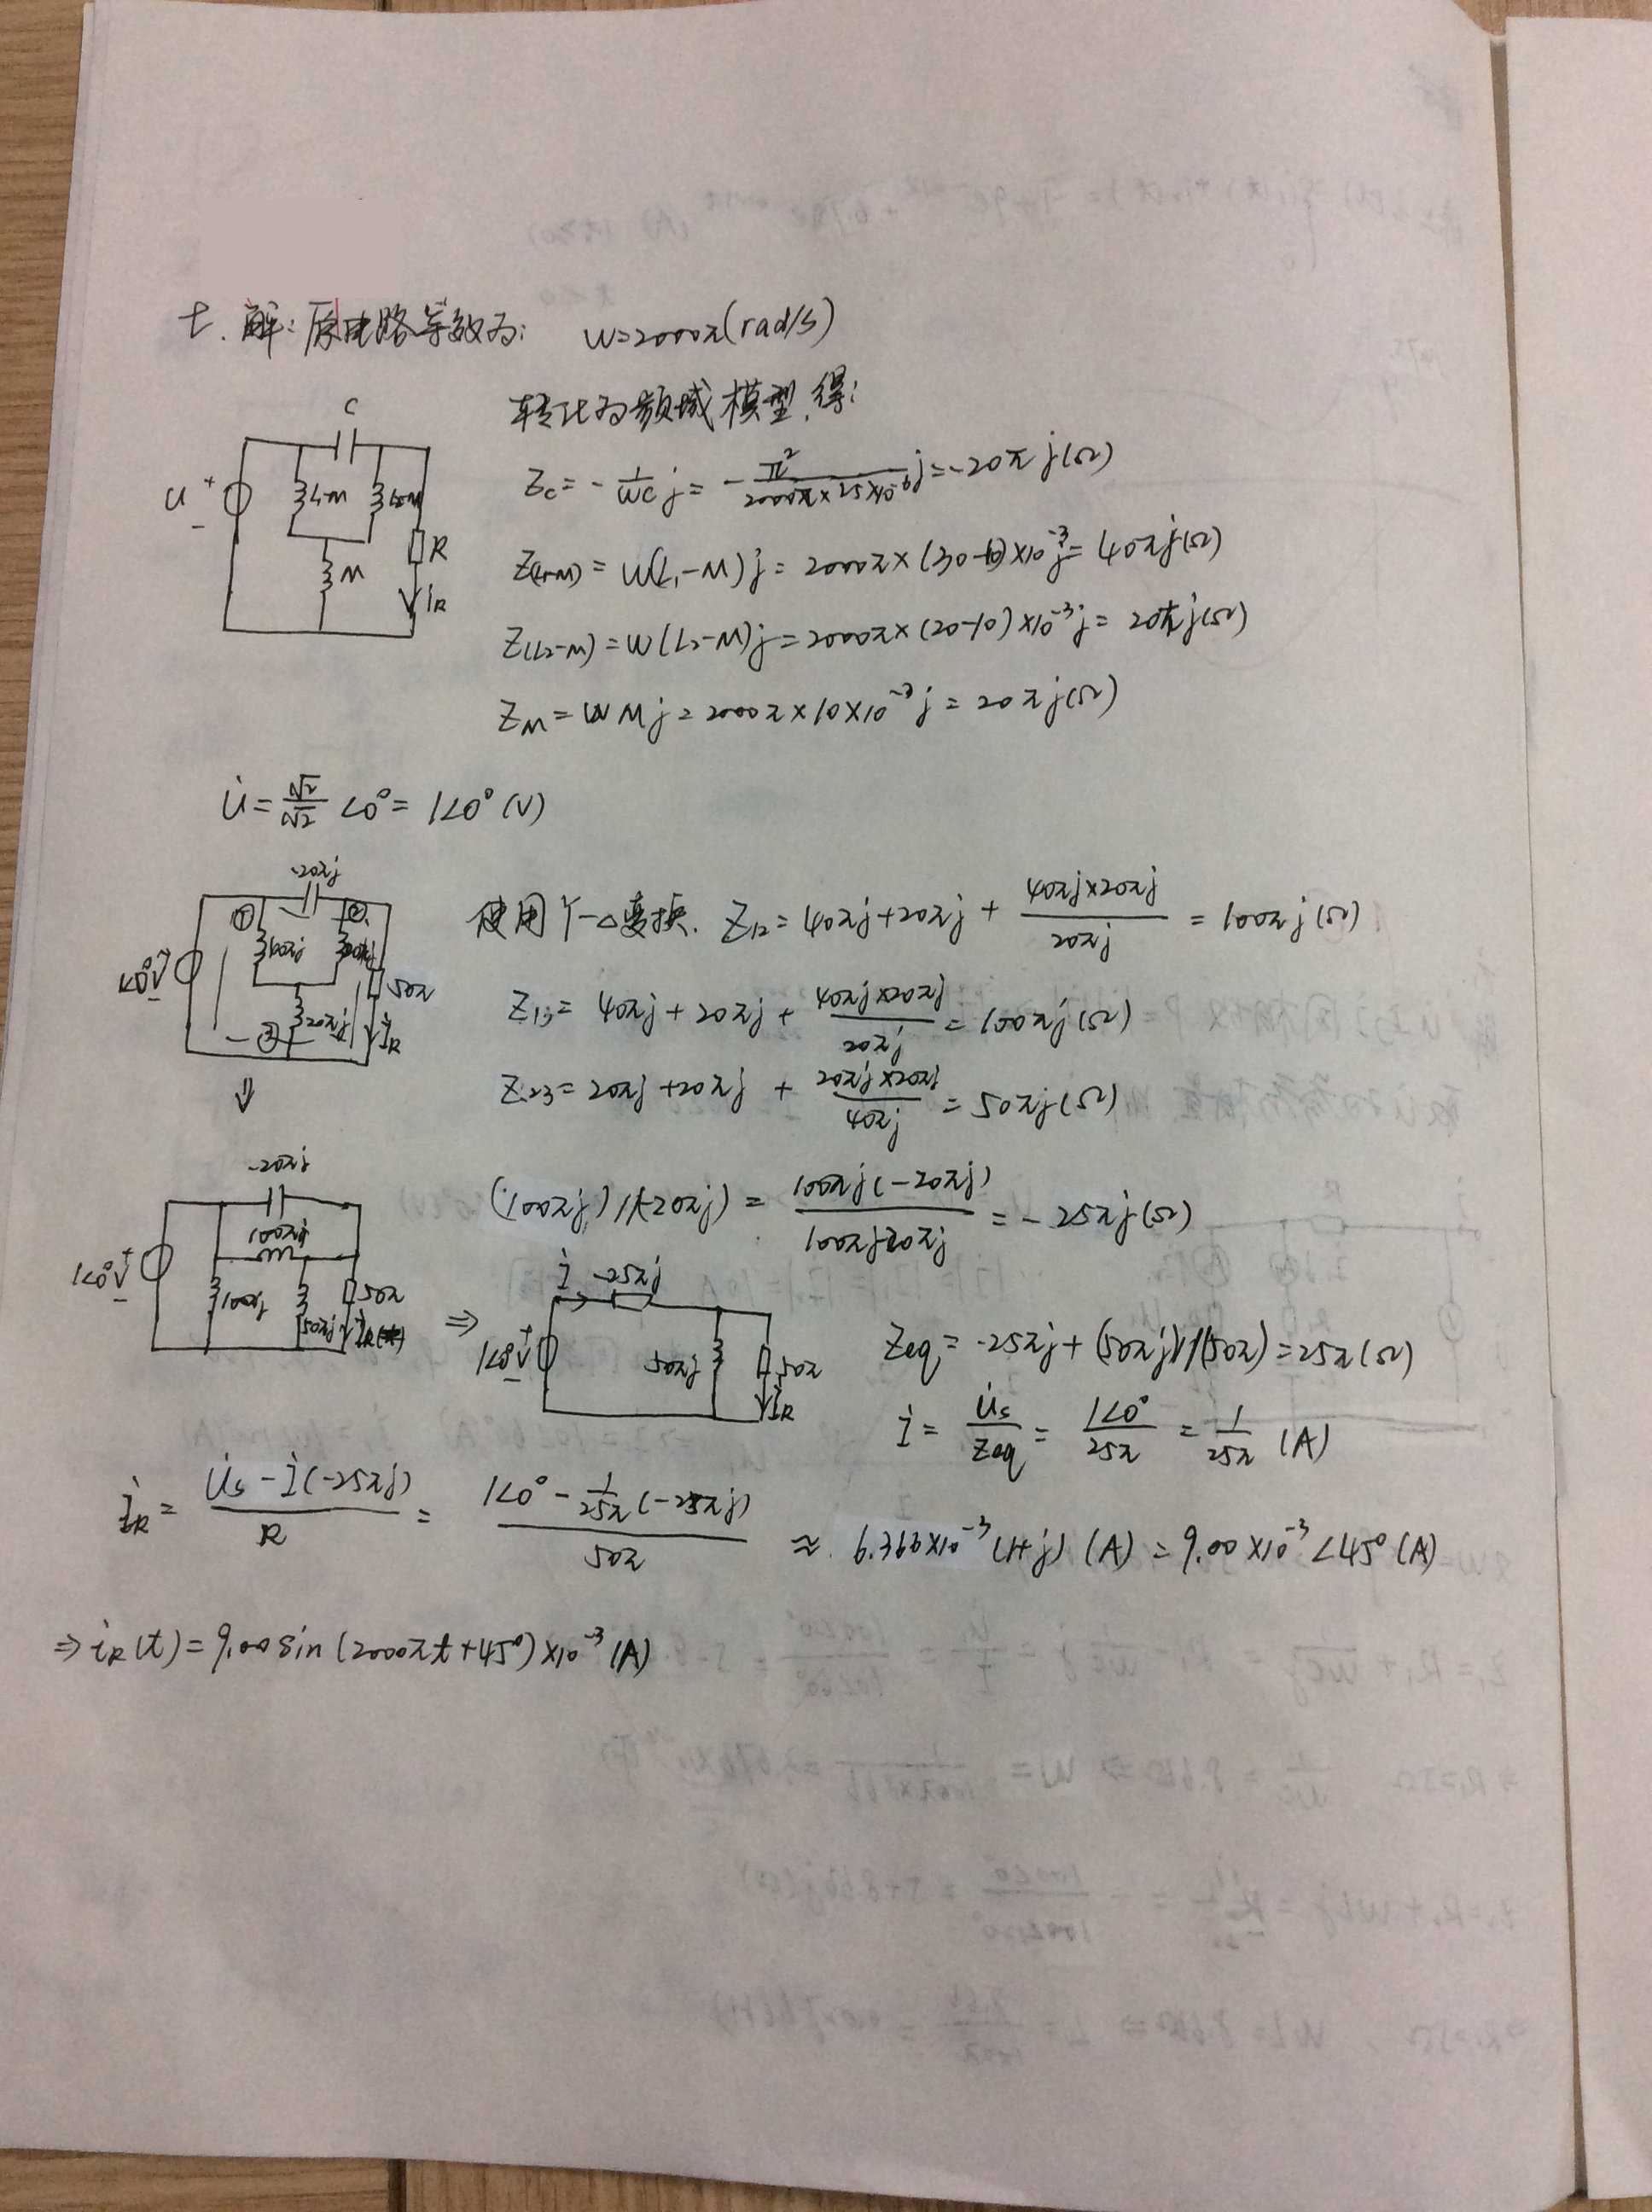 七. 解: 原电路等效为: W=2000π(rad/s)
转化为频域模型,得:
C
U + -
L1-M
L2-M
M
R
iR
Zc = - 1/WC j = - π²/(2000π×25×10⁻⁶) j = -20πj(Ω)
Z(L1-M) = W(L1-M)j = 2000π×(30-10)×10⁻³j = 40πj(Ω)
Z(L2-M) = W(L2-M)j = 2000π×(20-10)×10⁻³j = 20πj(Ω)
ZM = WMj = 2000π×10×10⁻³j = 20πj(Ω)
U̇ = √2/√2 ∠0° = 1∠0° (V)
-20πj
① ②
20πj
50π
20πj
③
İR
使用Y-△变换. Z12 = 40πj+20πj + (40πj×20πj)/(20πj) = 100πj(Ω)
Z13 = 40πj+20πj + (40πj×20πj)/(20πj) = 100πj(Ω)
Z23 = 20πj+20πj + (20πj×20πj)/(40πj) = 50πj(Ω)
⇓
-20πj
100πj
1∠0°V + -
100πj
50πj
50π
(100πj)//(-20πj) = 100πj(-20πj)/(100πj-20πj) = -25πj(Ω)
⇒
İ -25πj
1∠0°V + -
50πj
50π
İR
Zeq = -25πj+(50πj)//(50π) = 25π(Ω)
İ = U̇s/Zeq = 1∠0°/25π = 1/25π (A)
İR = (U̇s-İ(-25πj))/R = (1∠0° - 1/25π (-25πj))/50π ≈ 6.366×10⁻³(1+j) (A) = 9.00×10⁻³∠45° (A)
⇒ iR(t) = 9.00sin(2000πt+45°)×10⁻³(A)